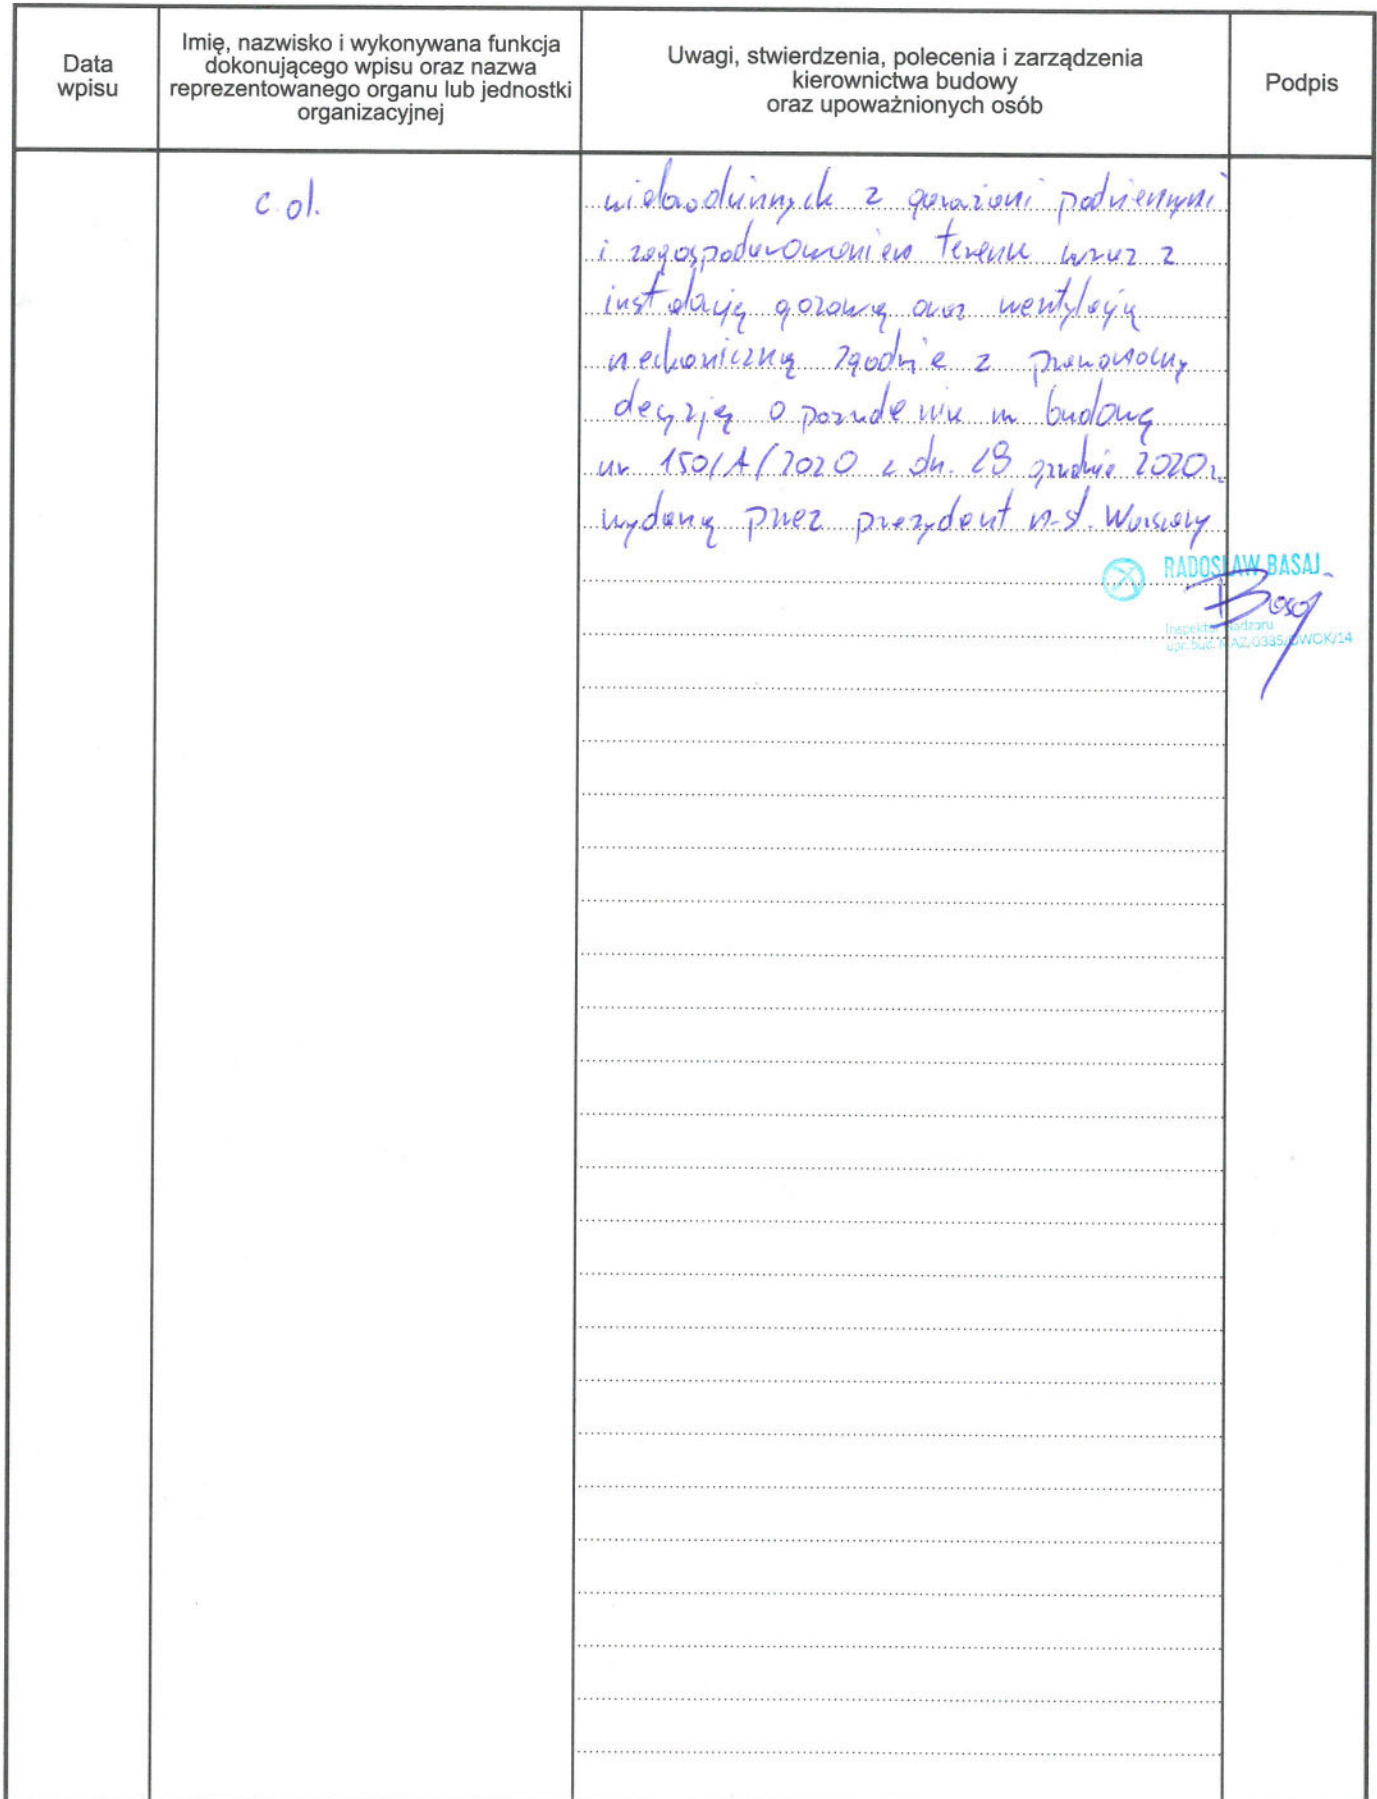 Data
wpisu
Imię, nazwisko i wykonywana funkcja
dokonującego wpisu oraz nazwa
reprezentowanego organu lub jednostki
organizacyjnej
Uwagi, stwierdzenia, polecenia i zarządzenia
kierownictwa budowy
oraz upoważnionych osób
Podpis
c.d.
wielorodzinnych z garażami podziemnymi
i zagospodarowaniem terenu wraz z
instalacją gazową oraz wentylacją
mechaniczną zgodnie z prawomocną
decyzją o pozwoleniu na budowę
nr 150/A/2020 z dn. 28 grudnia 2020r.
wydaną przez prezydent m.st. Warszawy
RADOSŁAW BASAJ
Basaj
Inspektor Nadzoru
upr. bud. MAZ/0335/OWOK/14